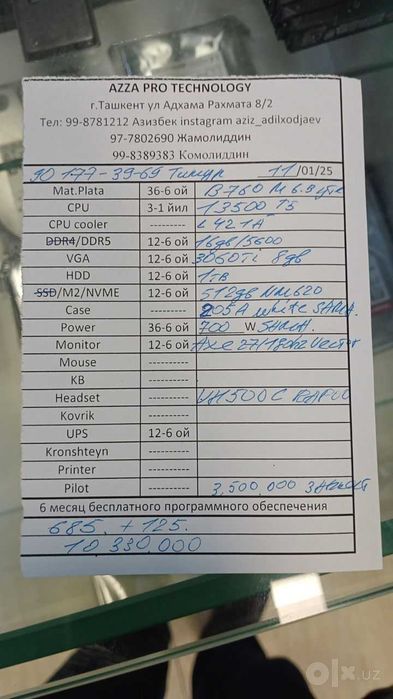 AZZA PRO TECHNOLOGY
г.Ташкент ул Адхама Рахмата 8/2
Тел: 99-8781212 Азизбек instagram aziz_adilxodjaev
97-7802690 Жамолиддин
99-8389383 Комолиддин
90 177-39-69 Тимур 11/01/25
Mat.Plata 36-6 ой B760M
CPU 3-1 йил 13500 T5
CPU cooler ---------
DDR4/DDR5 12-6 ой 16gb/5600
VGA 12-6 ой 3060Ti 8gb
HDD 12-6 ой 1TB
SSD/M2/NVME 12-6 ой 512gb NM620
Case --------- 205A white SAMA.
Power 36-6 ой 700 W SAMA.
Monitor 12-6 ой Axe 27/180hz Vector
Mouse ---------
KB ---------
Headset --------- VH500C
Kovrik ---------
UPS 12-6 ой
Kronshteyn ---------
Printer ---------
Pilot --------- 3,500,000
6 месяц бесплатного программного обеспечения
685. + 125.
10 330,000
olx.uz